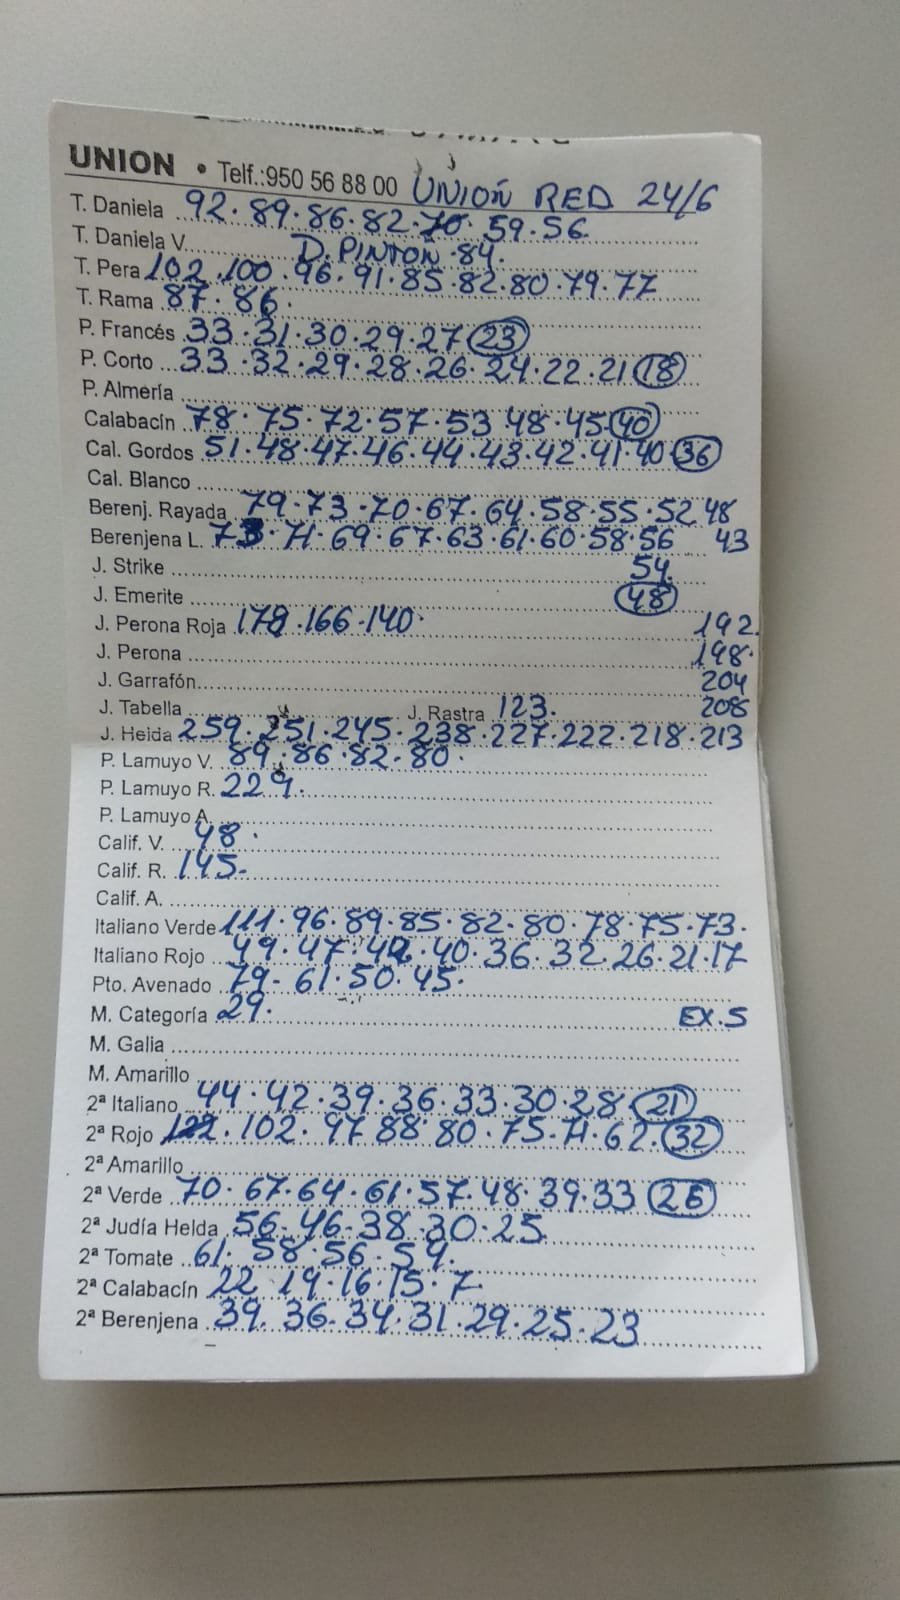 UNION • Telf.:950 56 88 00 UNION RED 24/6
T. Daniela 92. 89. 86. 82. 70. 59. 56
T. Daniela V. D. PINTON. 84.
T. Pera 102. 100. 96. 91. 85. 82. 80. 79. 77
T. Rama 87. 86.
P. Francés 33. 31. 30. 29. 27 23
P. Corto 33. 32. 29. 28. 26. 24. 22. 21 18
P. Almería
Calabacín 78. 75. 72. 57. 53 48. 45. 40
Cal. Gordos 51. 48. 47. 46. 44. 43. 42. 41. 40 36
Cal. Blanco
Berenj. Rayada 79. 73. 70. 67. 64. 58. 55. 52 48
Berenjena L. 73. 71. 69. 67. 63. 61. 60. 58. 56 43
J. Strike 54.
J. Emerite 48
J. Perona Roja 178. 166. 140. 192.
J. Perona 198.
J. Garrafón 204
J. Tabella J. Rastra 123. 208
J. Helda 259. 251. 245. 238. 227. 222. 218. 213
P. Lamuyo V. 89. 86. 82. 80.
P. Lamuyo R. 229.
P. Lamuyo A.
Calif. V. 48.
Calif. R. 145.
Calif. A.
Italiano Verde 111. 96. 89. 85. 82. 80. 78. 75. 73.
Italiano Rojo 49. 47. 42. 40. 36. 32. 26. 21. 17
Pto. Avenado 79- 61. 50. 45.
M. Categoría 29. EX.S
M. Galia
M. Amarillo
2ª Italiano 44. 42. 39. 36. 33. 30. 28 21
2ª Rojo 102. 97 88. 80. 75. 71. 62. 32
2ª Amarillo
2ª Verde 70. 67. 64. 61. 57. 48. 39. 33 26
2ª Judía Helda 56- 46- 38. 30. 25
2ª Tomate 61. 58. 56. 54.
2ª Calabacín 22 19. 16. 15. 7
2ª Berenjena 39. 36. 34. 31. 29. 25. 23